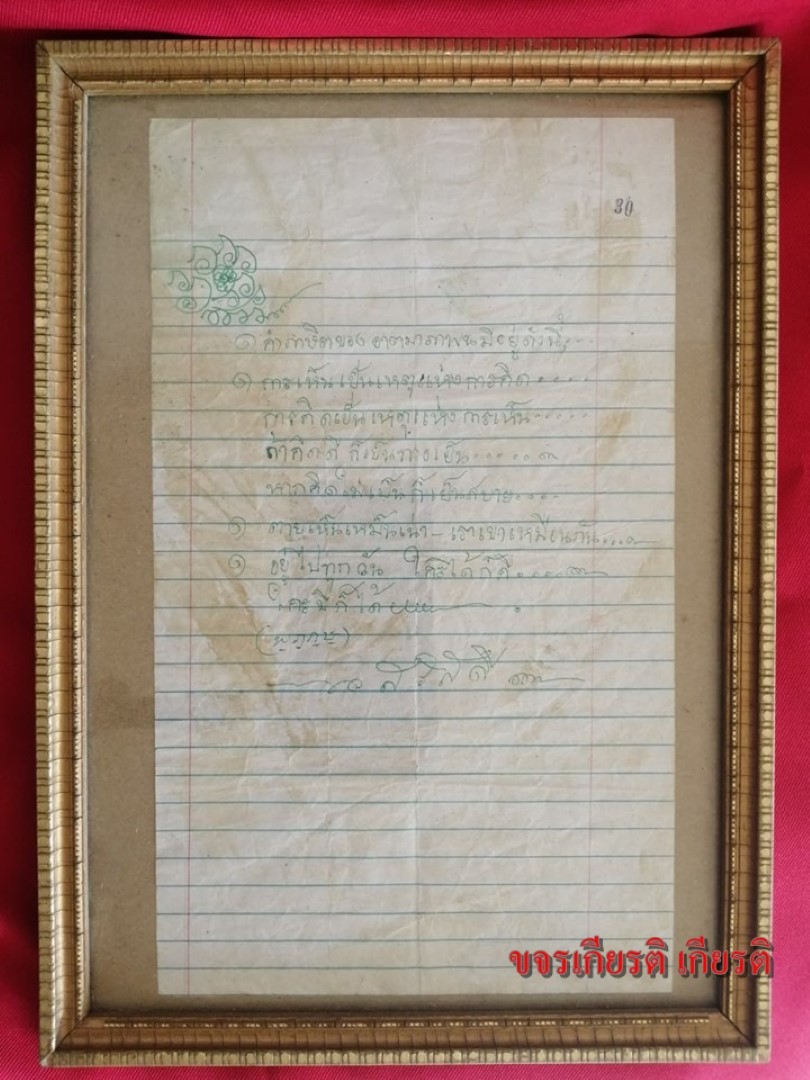 30
๑ คำภาษิตของ อาตมาภาพ มีอยู่ดังนี้
๑ การเห็นเป็นเหตุแห่งการคิด....
การคิดเป็นเหตุแห่งการเห็น....
ถ้าคิดดี ก็เย็น.....
หากคิด ก็เป็นสบาย....
๑ ตายเห็นเหม็นเน่า - เราเขาเหมือนกัน....
๑ อยู่ไปทุกวัน ใครได้ก็ดี.....
ใคร ก็ได้
สวัสดี
ขจรเกียรติ เกียรติ